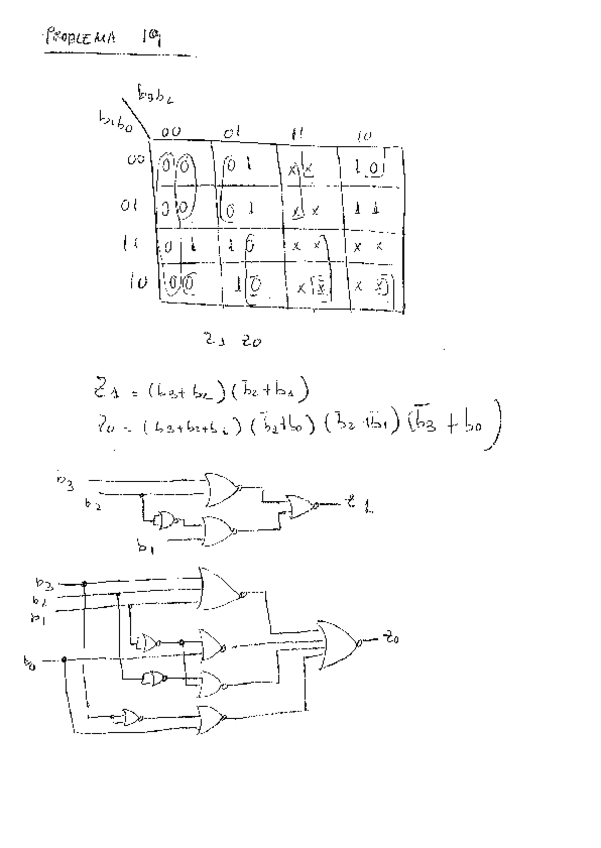 PROBLEMA 19
b3b2
b1b0 00 01 11 10
00 00 01 xx 10
01 00 01 xx 11
11 01 10 xx xx
10 00 10 xx xx
Z1 Z0
Z1 = (b3+b2)(b̄2+b1)
Z0 = (b3+b2+b1)(b̄1+b0)(b̄2+b̄1)(b̄3+b0)
b3
b2
b1
Z1
b3
b2
b1
b0
Z0